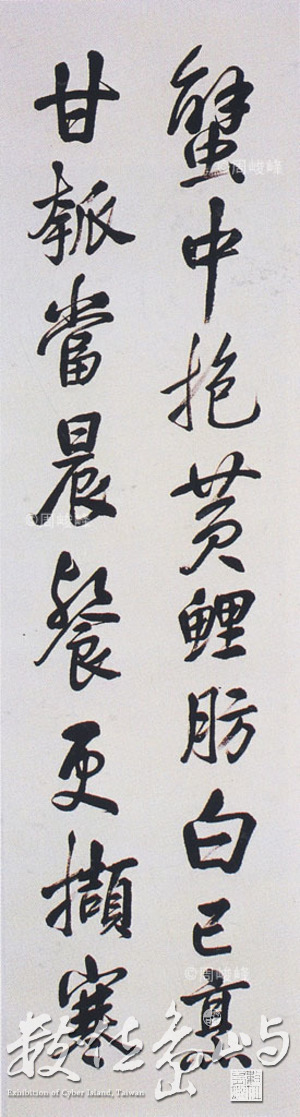 蟹中抱黄鯉肪白已烹
甘瓠當晨餐更擷寒
©周峻峰
©周峻峰
©周峻峰
數位島嶼
Exhibition of Cyber Island, Taiwan